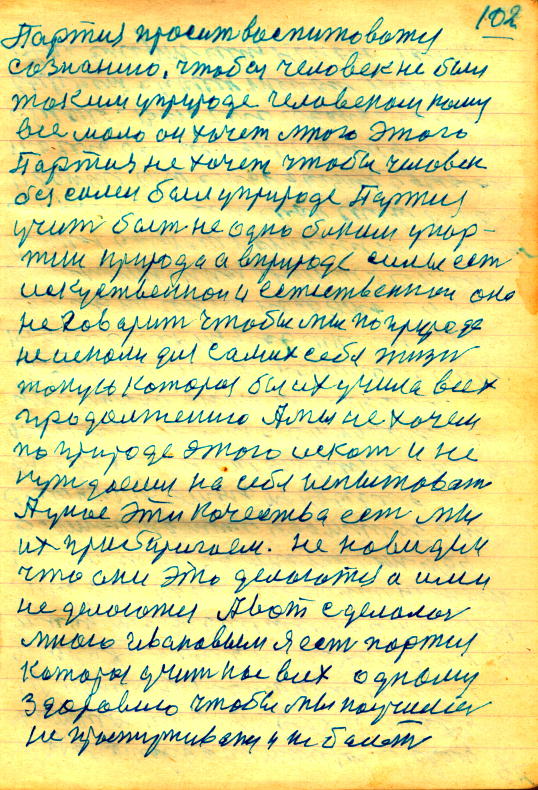 102
Партия просит воспитоватся
сознанию, чтобы человек не был
таким уприроде человеком кому
все мало он хочет много Этого
Партия не хочет чтобы человек
без силен был уприроде Партия
учит быт не одно боким упар-
тии природа а вприроде силы ест
искуственной и естественной она
не говорит чтобы мы поприроде
неискали для самих себя жизн
такую которая бы их учила всех
продолжению Амы не хочем
по природе этого искат и не
нуждаемся на себя испытоват
Аунас Эти качества ест мы
их приберигаем. не новидим
что они это делаются а ими
не делаются Авот сделалос
много Ивановым Я ест партия
которая учит нас всех одному
здоровию чтобы мы научилис
не простуживатся и не болет